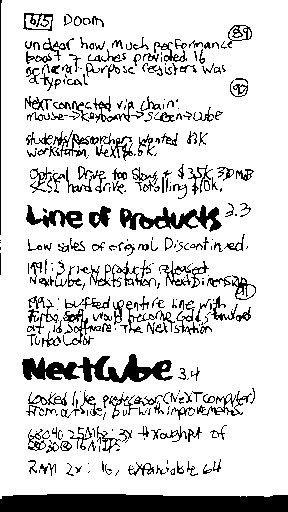 6/5 DOOM
unclear how much performance
89
boost 7 caches provided 16
general-purpose registers was
atypical
90
NeXT connected via chain:
mouse->keyboard->screen->cube
students/researchers wanted $3K
workstation, NeXT $6.5K.
Optical Drive too slow + $3.5K 330MB
SCSI hard drive. Totalling $10K.
Line of Products 3.3
Low sales of original. Discontinued.
1991: 3 new products released
NextCube, Nextstation, NextDimension
91
1992: buffed up entire line with
Turbo, would become Gold Standard
at id Software: The NeXTstation
TurboColor
NextCube 3.4
Looked like predecessor (NeXT Computer)
from outside, but with improvements.
68040 25MHz: 3x throughput of
68030 @ 16 MIPS
RAM 2x: 16, expandable 64